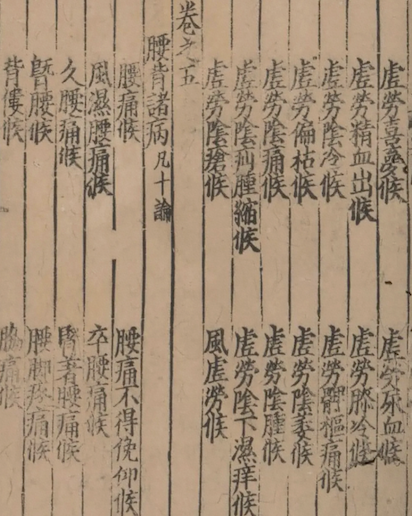 虛勞喜夢候　虛勞尿血候
虛勞精血出候　虛勞膝冷候
虛勞陰冷候　虛勞髀樞痛候
虛勞偏枯候　虛勞陰萎候
虛勞陰痛候　虛勞陰腫候
虛勞陰疝腫縮候　虛勞陰下濕痒候
虛勞陰瘡候　風虛勞候
卷之五
腰背諸病凡十論
腰痛候　腰痛不得俛仰候
風濕腰痛候　卒腰痛候
久腰痛候　腎著腰痛候
䐴腰候　腰脚疼痛候
背僂候　脇痛候